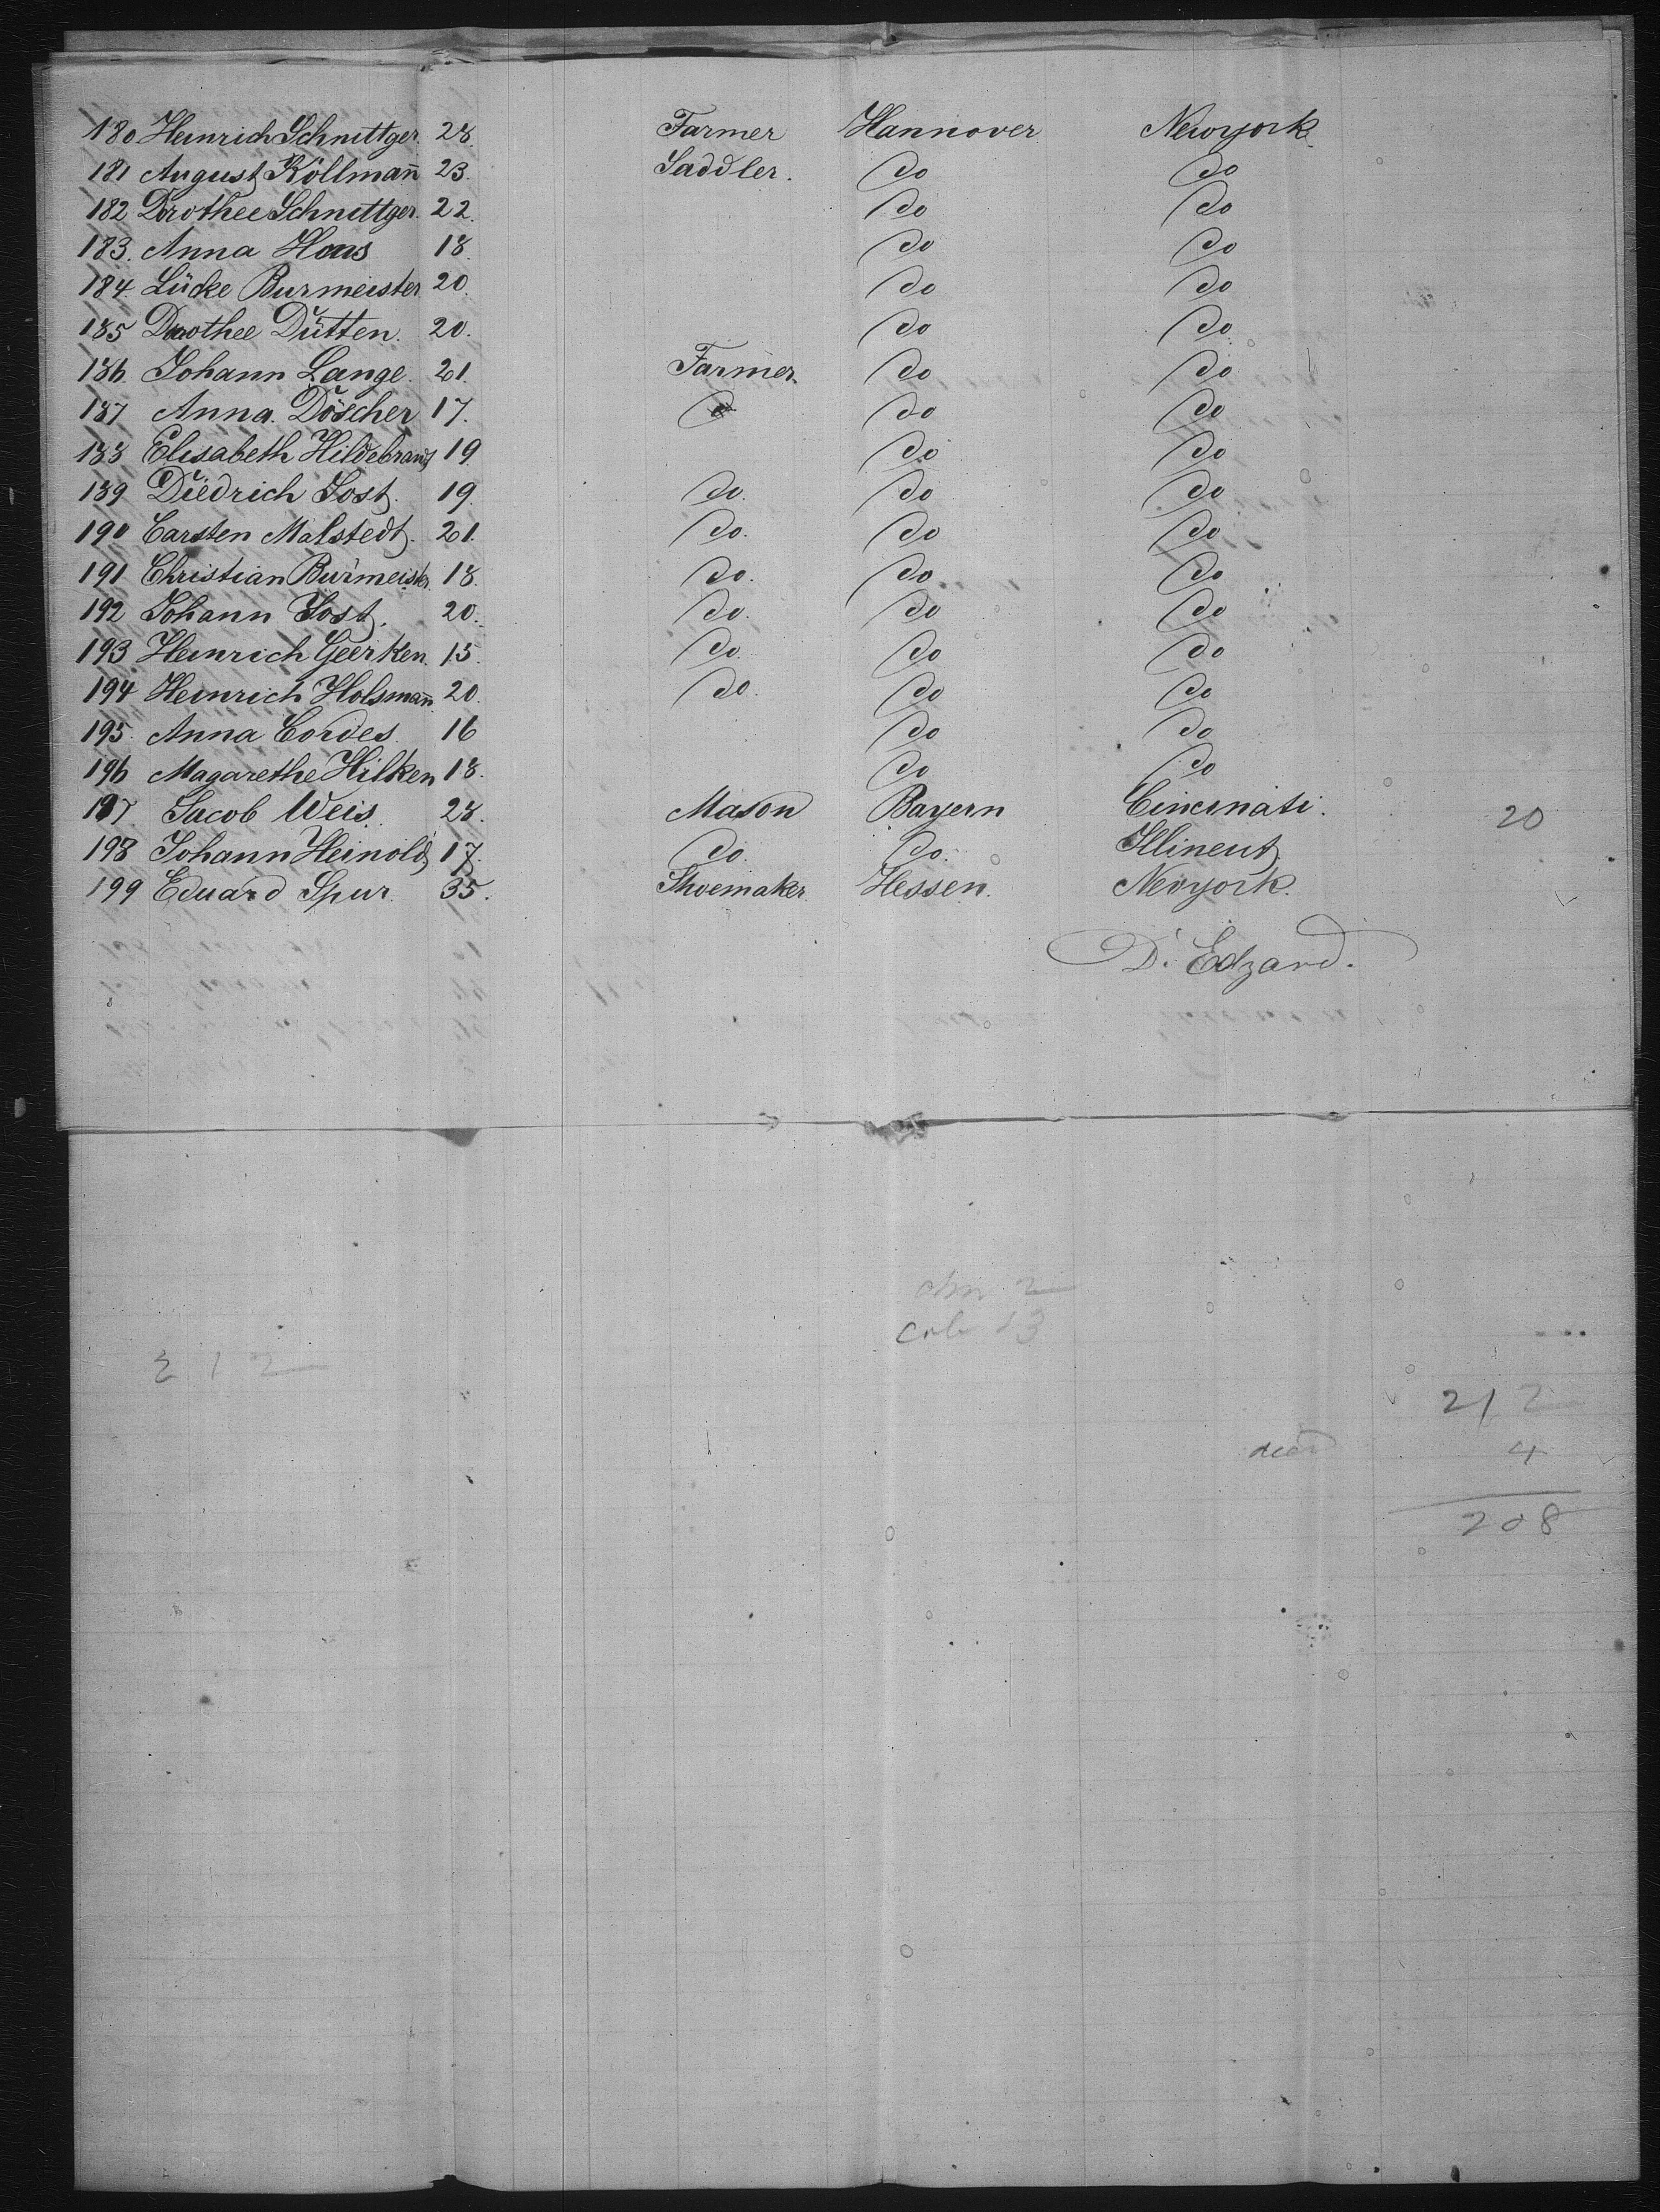 180 Heinrich Schnittger. 28. Farmer Hannover Newyork.
181 August Köllman̄ 23. Saddler. do do
182 Dorothee Schnittger. 22. do do
183. Anna Haas 18. do do
184. Lücke Burmeister. 20. do do
185 Dorothee Dütten. 20. do do
186. Johann Lange. 21. Farmer. do do
187 Anna. Döscher 17. do do
188 Elisabeth Hildebrand 19. do do
189 Diedrich Jost. 19. do. do do
190 Carsten Malstedt. 21. do. do do
191 Christian Burmeister. 18. do. do do
192 Johann Jost. 20. do. do do
193 Heinrich Geerken. 15. do. do do
194 Heinrich Holsman̄. 20. do. do do
195. Anna Cordes. 16 do do
196 Magarethe Hilken 18. do do
197 Jacob Weis. 28. Mason Bayern Cincinati. 20
198 Johann Heinold, 17. do. do. Illineut.
199 Eduard Spur. 35. Shoemaker. Hessen. Nevyork.
D. Edzard.
2
13
212
212
dead 4
208